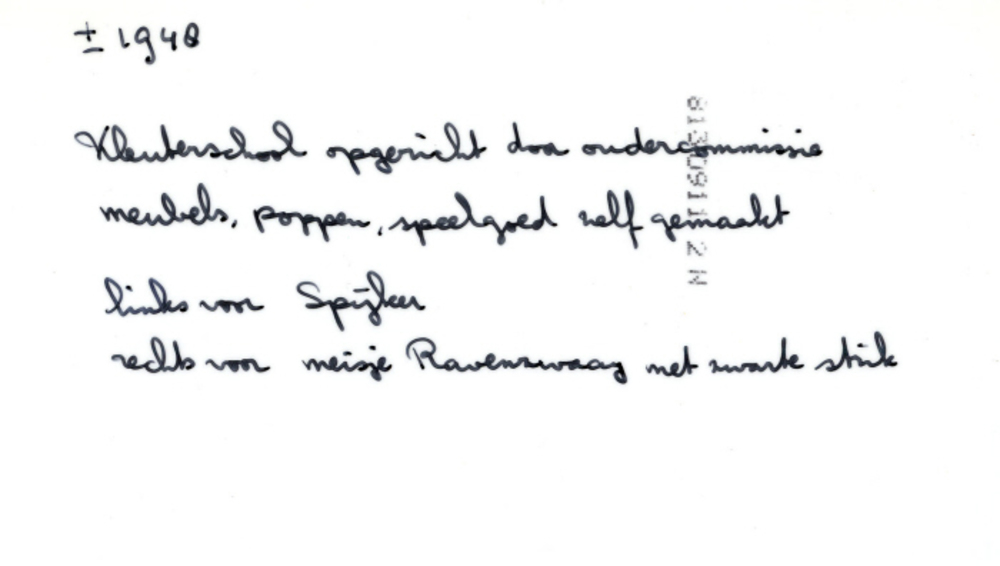 ± 1948
Kleuterschool opgericht door oudercommissie
meubels, poppen, speelgoed zelf gemaakt
links voor Spijker
rechts voor meisje Ravenzwaag met zwarte strik